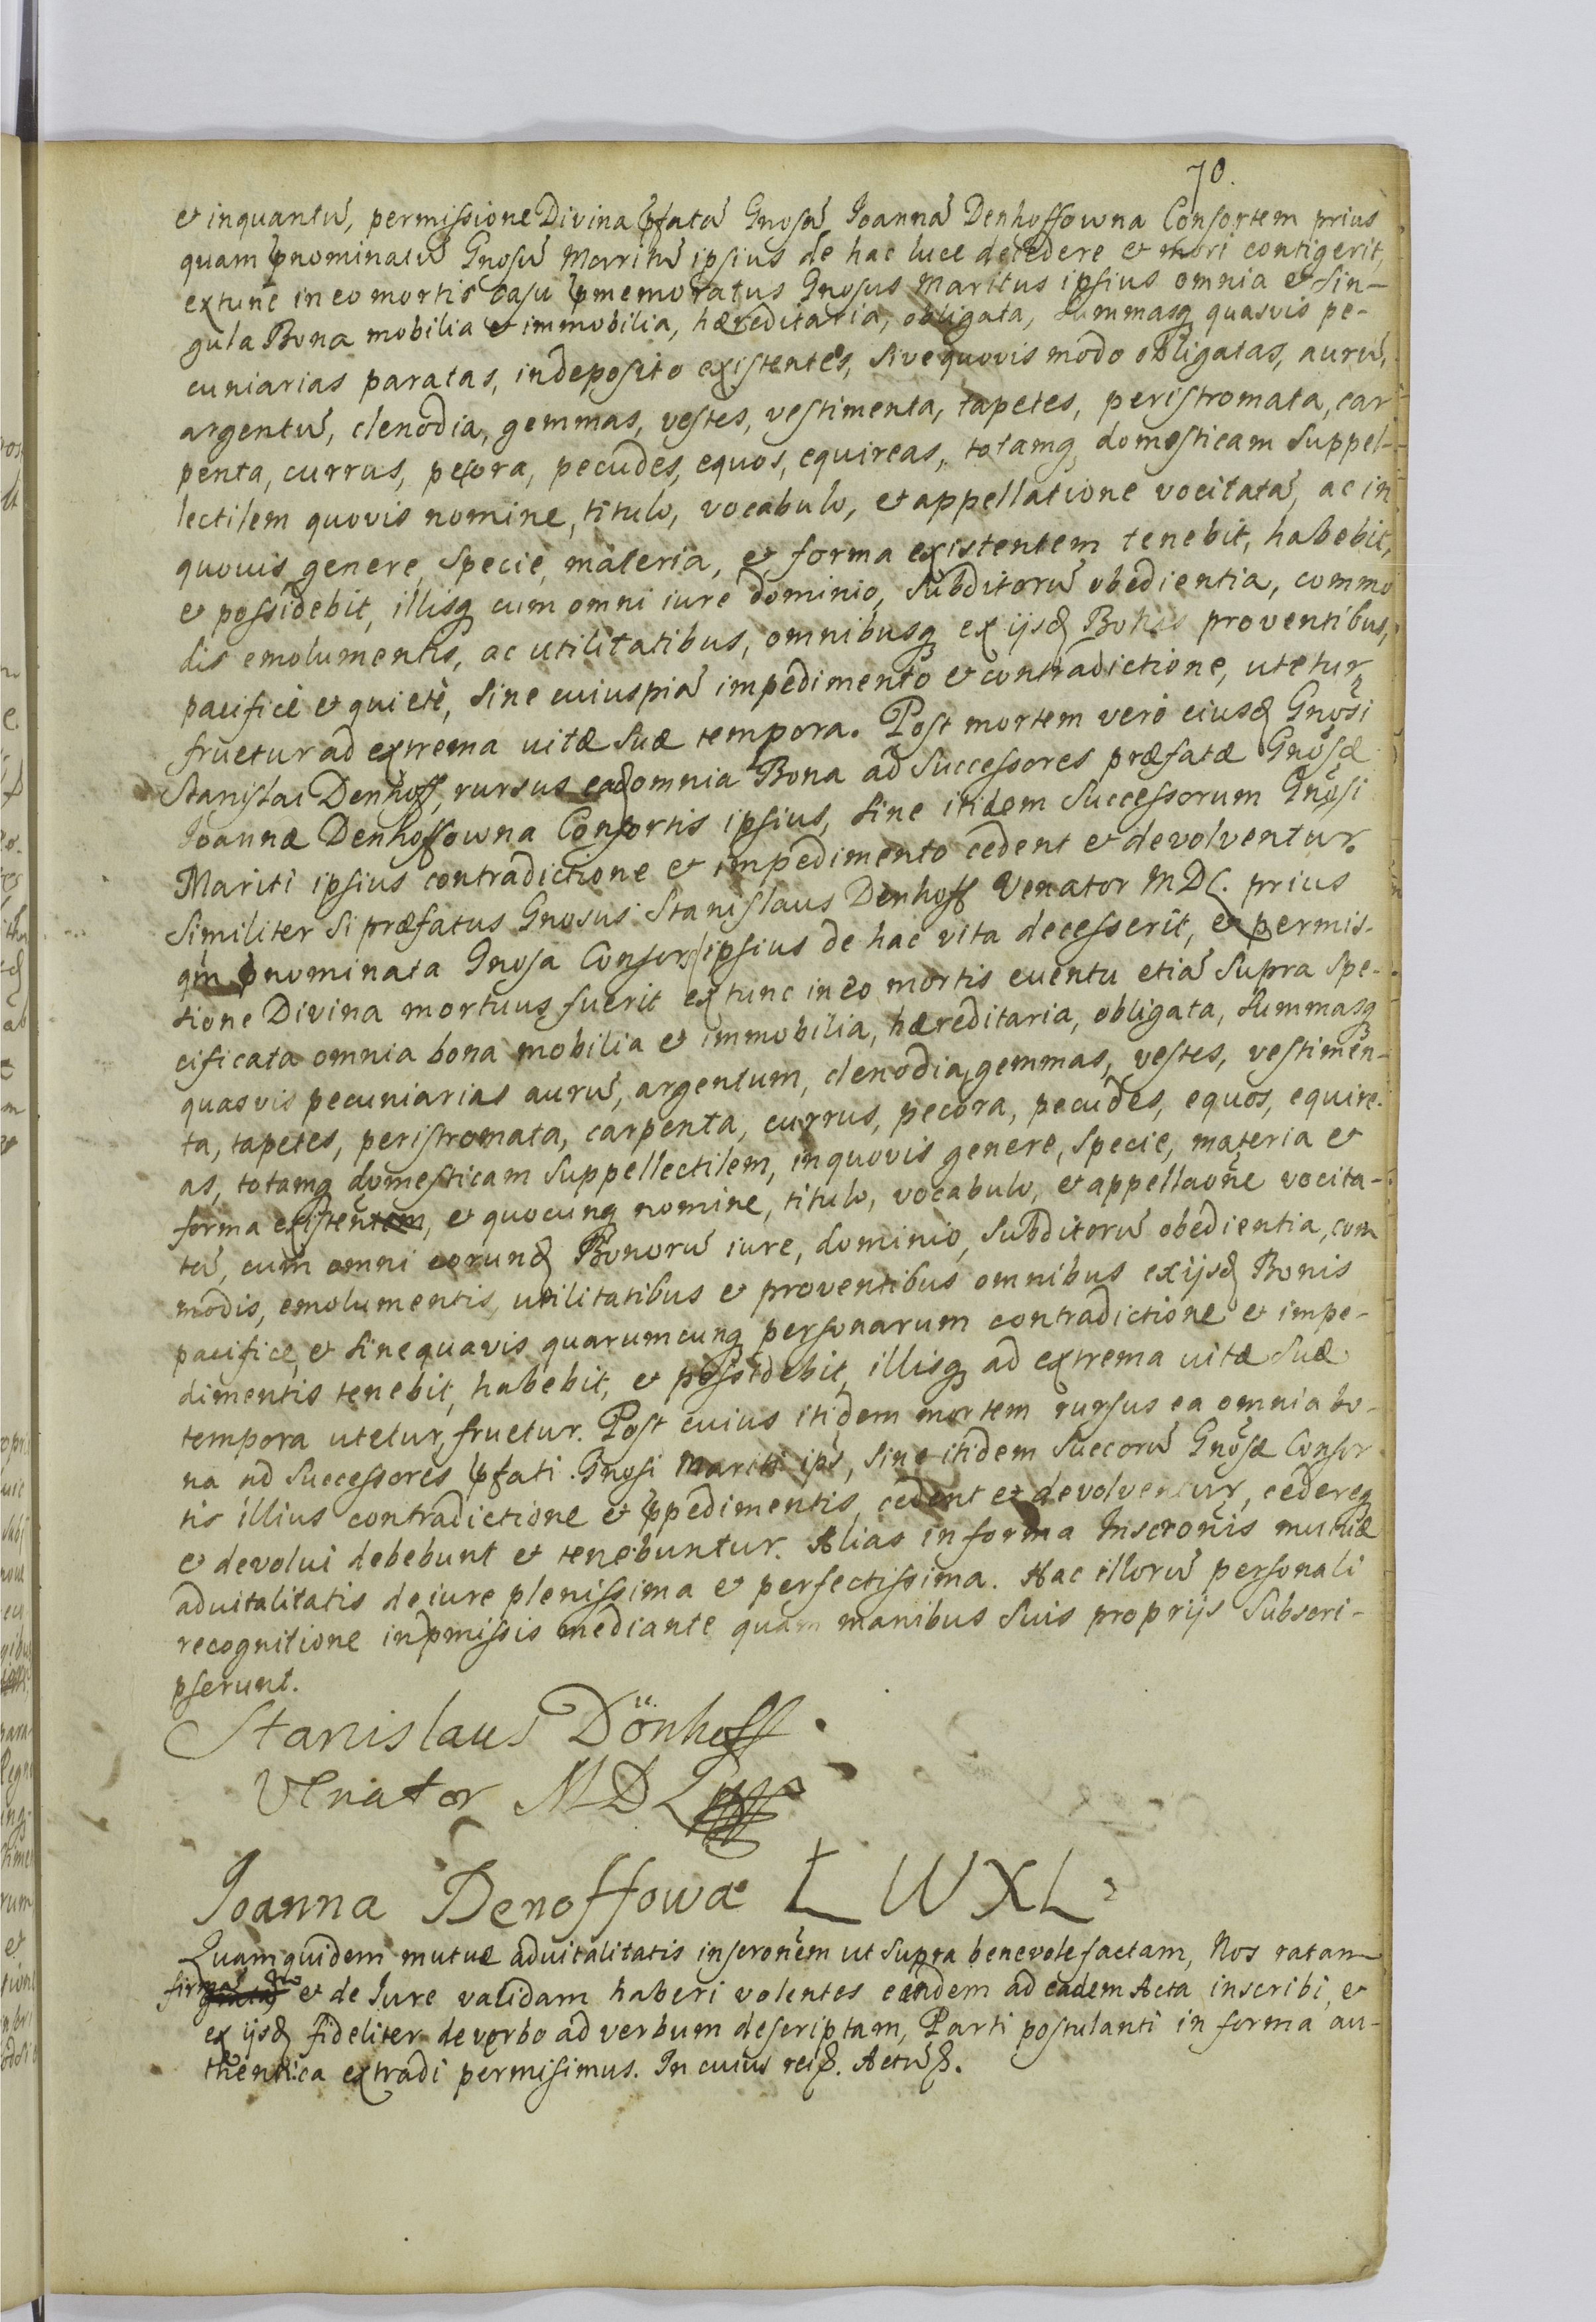 70.
et inquantū, permissione Divina p̄fatā Gnosā Joannā Denhoffowna Consortem prius
quam p̄nominatū Gnosū Maritū ipsius de hac luce decedere et mori contigerit,
extunc in eo mortis casu p̄memoratus Gnosus Maritus ipsius omnia et sin-
gula Bona mobilia et immobilia, hæreditaria, obligata, summasq quasvis pe-
cuniarias paratas, in deposito existentes, sive quovis modo obligatas, aurū,
argentū, clenodia, gemmas, vestes, vestimenta, tapetes, peristromata, car
penta, currus, pecora, pecudes, equos, equireas, totamq domesticam suppel-
lectilem quovis nomine, titulo, vocabulo, et appellatione vocitatā, ac in
quouis genere, specie, materia, et forma existentem tenebit, habebit,
et possidebit, illisq cum omni iure dominio, subditorū obedientia, commo
dis emolumentis, ac utilitatibus, omnibusq ex ijsd Bonis proventibus,
pacificè et quietè, sine cuiuspiā impedimento et contradictione, utetur,
fruetur ad extrema uitæ suæ tempora. Post mortem verò eiusd Gnōsi
Stanislai Denhoff, rursus ead omnia Bona ad Successores præfatæ Gnōsæ
Joannæ Denhoffowna Consortis ipsius, sine itidem Successorum Gnōsi
Mariti ipsius contradictione et impedimento cedent et devolventur.
Similiter si præfatus Gnosus Stanislaus Denhoff Venator MDL. prius
qm̄ p̄nominata Gnosa Consors ipsius de hac vita decesserit, et permis-
sione Divina mortuus fuerit extunc in eo mortis euentu etiā supra spe-
cificata omnia bona mobilia et immobilia, hæreditaria, obligata, summasq
quasvis pecuniarias aurū, argentum, clenodia, gemmas, vestes, vestimen-
ta, tapetes, peristromata, carpenta, currus, pecora, pecudes, equos, equire-
as, totamq domesticam suppellectilem, in quovis genere, specie, materia et
forma existentem, et quocunq nomine, titulo, vocabulo, et appellaōne vocita-
tā, cum omni eorund Bonorū iure, dominio, subditorū obedientia, com
modis, emolumentis, utilitatibus et proventibus omnibus ex ijsd Bonis
pacifice, et sine quavis quarumcunq personarum contradictione et impe-
dimentis tenebit, habebit, et possidebit, illisq ad extrema uitæ suæ
tempora utetur, fruetur. Post cuius itidem mortem rursus ea omnia bo-
na ad Successores p̄fati Gnosi Mariti ips, sine itidem Succorū Gnōsæ Consor
tis illius contradictione et p̄pedimentis, cedent et devolventur, cedereq
et devolui debebunt et tenebuntur. Alias in forma Inscrōnis mutuæ
aduitalitatis de iure plenissima et perfectissima. Hac illorū personali
recognitione in p̄missis mediante quam manibus suis proprijs subscri-
pserunt.
Stanislaus Dönhoff.
Venator MDL
Joanna Denoffowa Ł W X L
Quamquidem mutuæ aduitalitatis inscrōnem ut supra benevole factam, Nos ratam
firmā et de Iure validam haberi volentes eandem ad eadem Acta inscribi, et
ex ijsd fideliter de verbo ad verbum descriptam, Parti postulanti in forma au-
thentica extradi permisimus. In cuius rei ꝫ. Actū ꝫ.